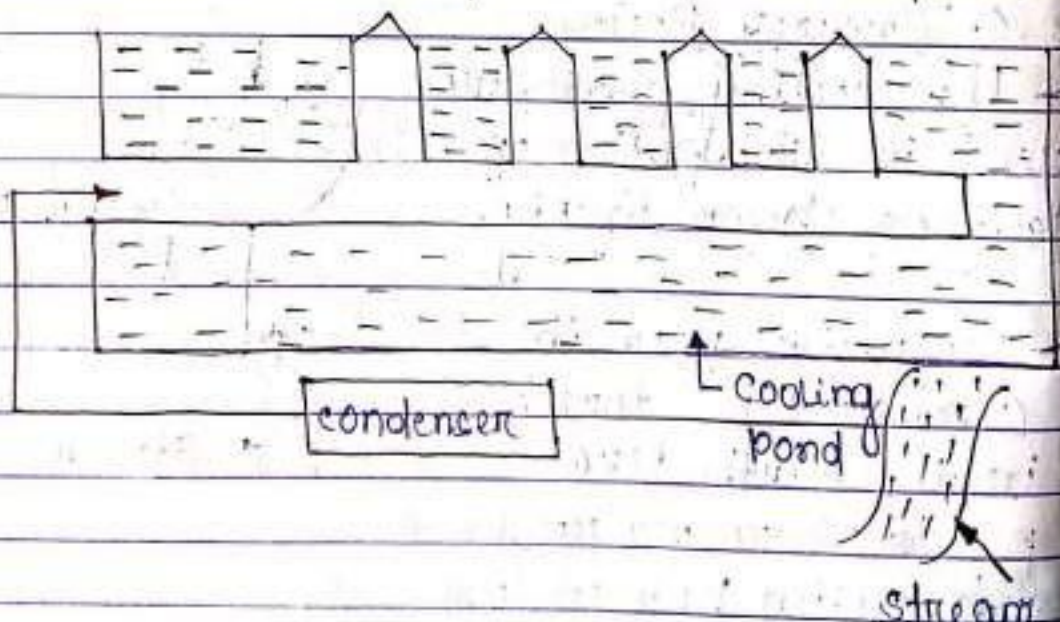 condenser
cooling
pond
stream